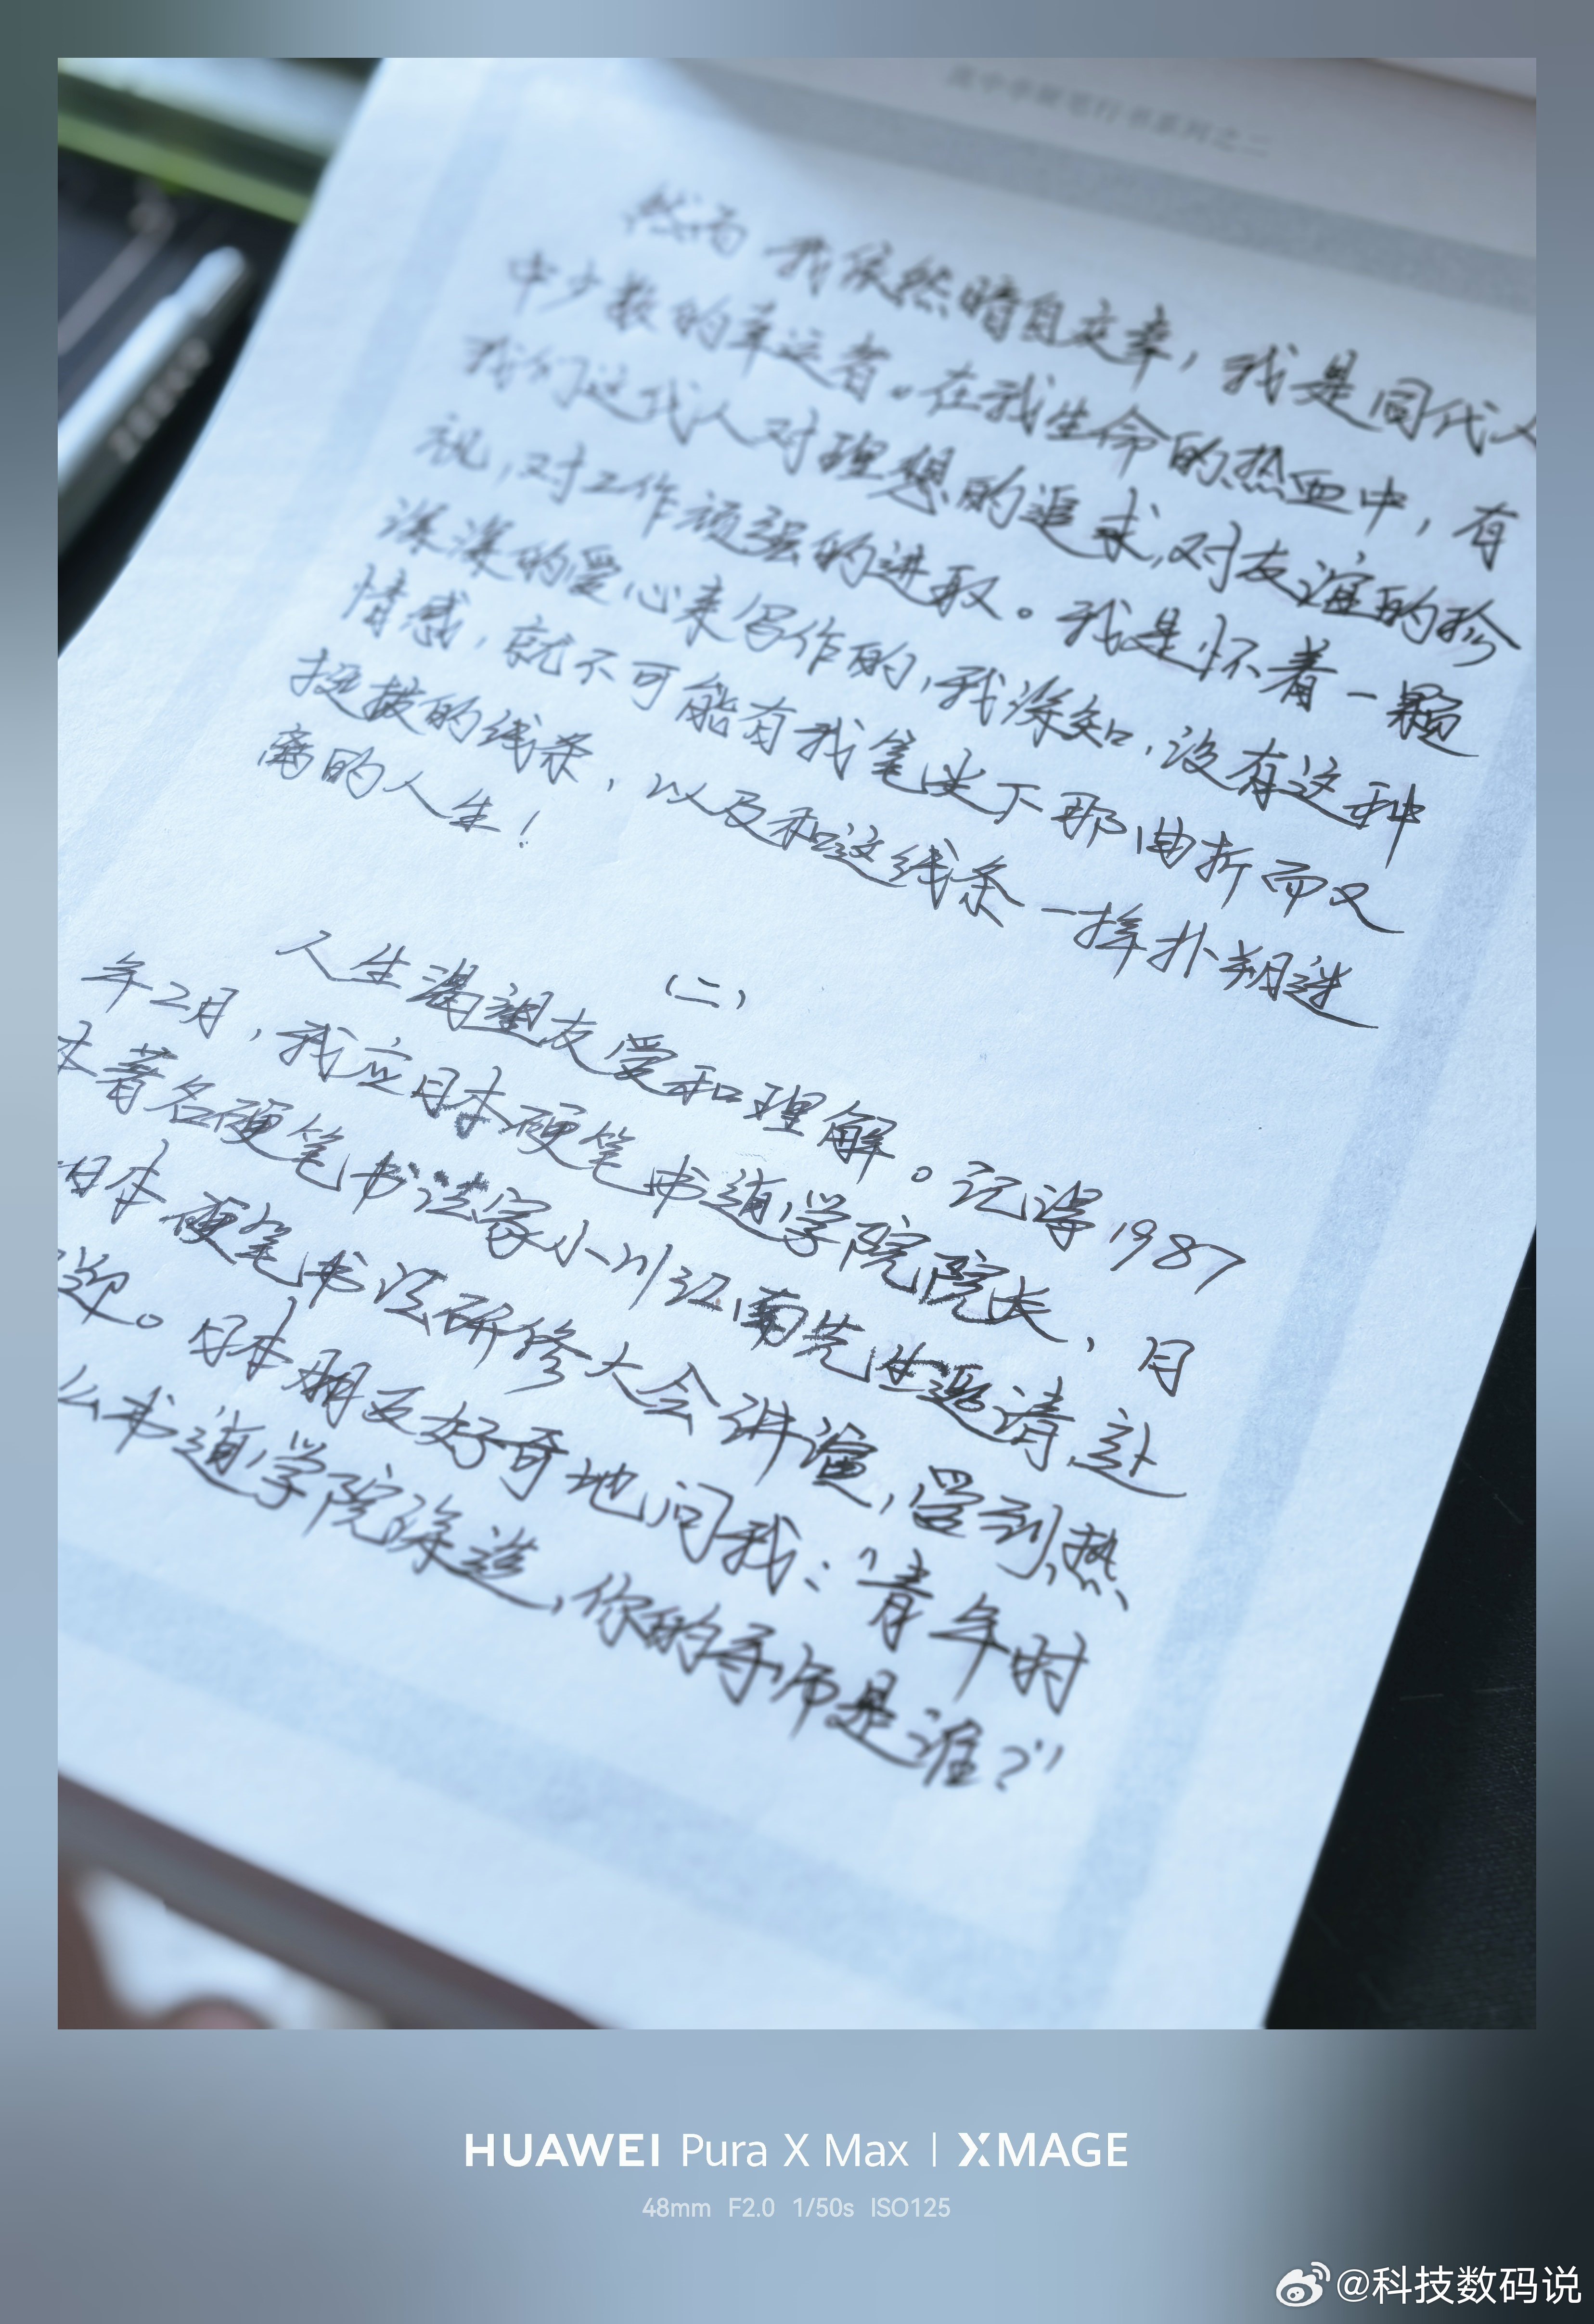 庞中华钢笔行书系列之二
然而 我依然暗自庆幸，我是同代人
中少数的幸运者。在我生命的热血中，有
我们这代人对理想的追求，对友谊的珍
视，对工作顽强的进取。我是怀着一颗
深深的爱心来写作的，我深知，没有这种
情感，就不可能有我笔尖下那曲折而又
挺拔的线条，以及和这线条一样扑朔迷
离的人生！
（二）
人生渴望友爱和理解。记得1987
年2月，我应日本硬笔书道学院院长，日
本著名硬笔书法家小川江南先生邀请，赴
日本硬笔书法研修大会讲演，受到热
烈欢迎。日本朋友好奇地问我：“青年时
么书道学院深造，你的导师是谁？”
HUAWEI Pura X Max | XMAGE
48mm F2.0 1/50s ISO125
@科技数码说